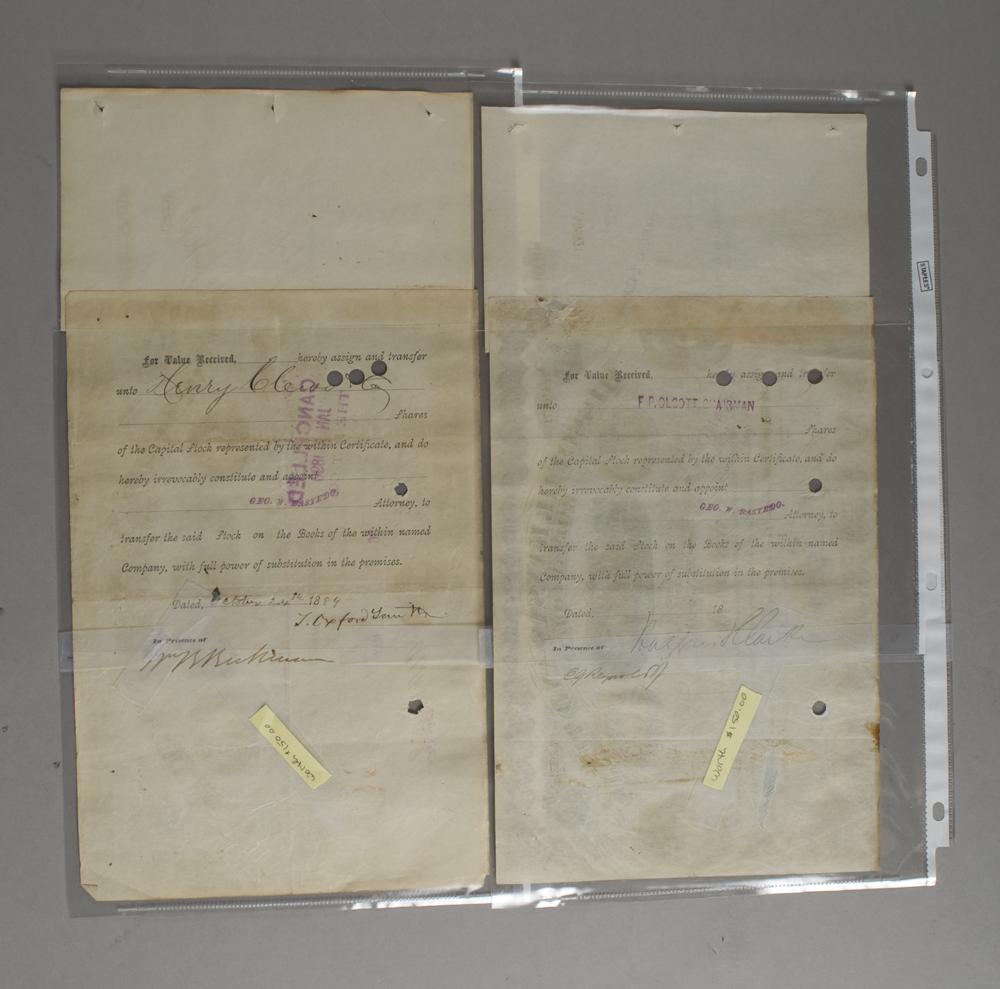 For Value Received, hereby assign and transfer
unto Henry Clews & Co
Shares
of the Capital Stock represented by the within Certificate, and do
hereby irrevocably constitute and appoint
GEO. W. BASTEDO,
Attorney, to
transfer the said Stock on the Books of the within named
Company, with full power of substitution in the premises.
Dated, October 24th 1889
In Presence of
CANCELLED
JAN
worth $150.00
For Value Received, hereby assign and transfer
unto F. P. OLCOTT, CHAIRMAN
Shares
of the Capital Stock represented by the within Certificate, and do
hereby irrevocably constitute and appoint
GEO. W. BASTEDO.
Attorney, to
transfer the said Stock on the Books of the within named
Company, with full power of substitution in the premises.
Dated, 18
In Presence of
worth $150.00
STAPLES